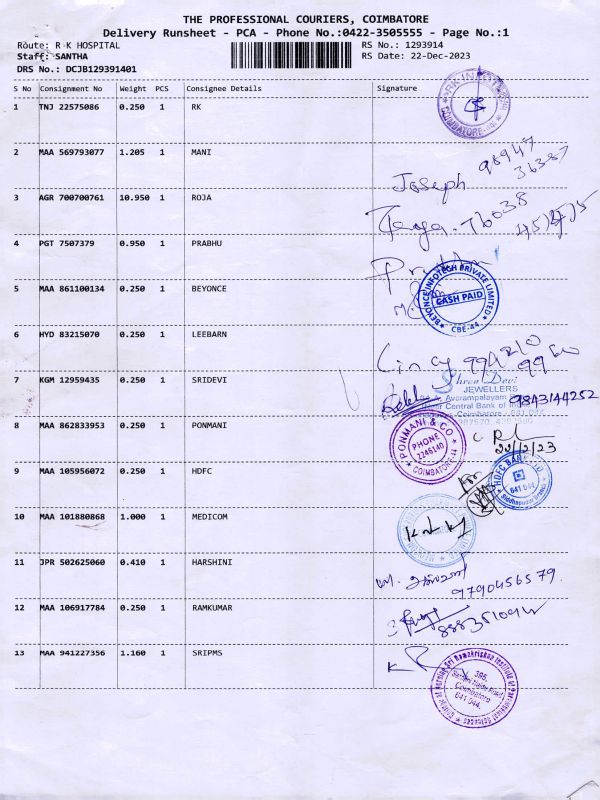 THE PROFESSIONAL COURIERS, COIMBATORE
Delivery Runsheet - PCA - Phone No.:0422-3505555 - Page No.:1
Route: R K HOSPITAL RS No.: 1293914
Staff: SANTHA RS Date: 22-Dec-2023
DRS No.: DCJB129391401
S No Consignment No Weight PCS Consignee Details Signature
1 TNJ 22575086 0.250 1 RK
COIMBATORE
2 MAA 569793077 1.205 1 MANI
Joseph 98947
36387
3 AGR 700700761 10.950 1 ROJA
4 PGT 7507379 0.950 1 PRABHU
5 MAA 861100134 0.250 1 BEYONCE
BEYONCE INFOTECH PRIVATE LIMITED
CASH PAID
CBE-44
6 HYD 83215070 0.250 1 LEEBARN
7 KGM 12959435 0.250 1 SRIDEVI
Shree Devi
JEWELLERS
Avarampalayam
Central Bank of
Coimbatore - 641 044
9843144252
8 MAA 862833953 0.250 1 PONMANI
PONMANI & CO
PHONE
2246140
COIMBATORE-44
22/12/23
9 MAA 105956072 0.250 1 HDFC
For
HDFC BANK LTD
641 044
10 MAA 101880868 1.000 1 MEDICOM
11 JPR 502625060 0.410 1 HARSHINI
9790456579
12 MAA 106917784 0.250 1 RAMKUMAR
13 MAA 941227356 1.160 1 SRIPMS
395,
Coimbatore
641 044.